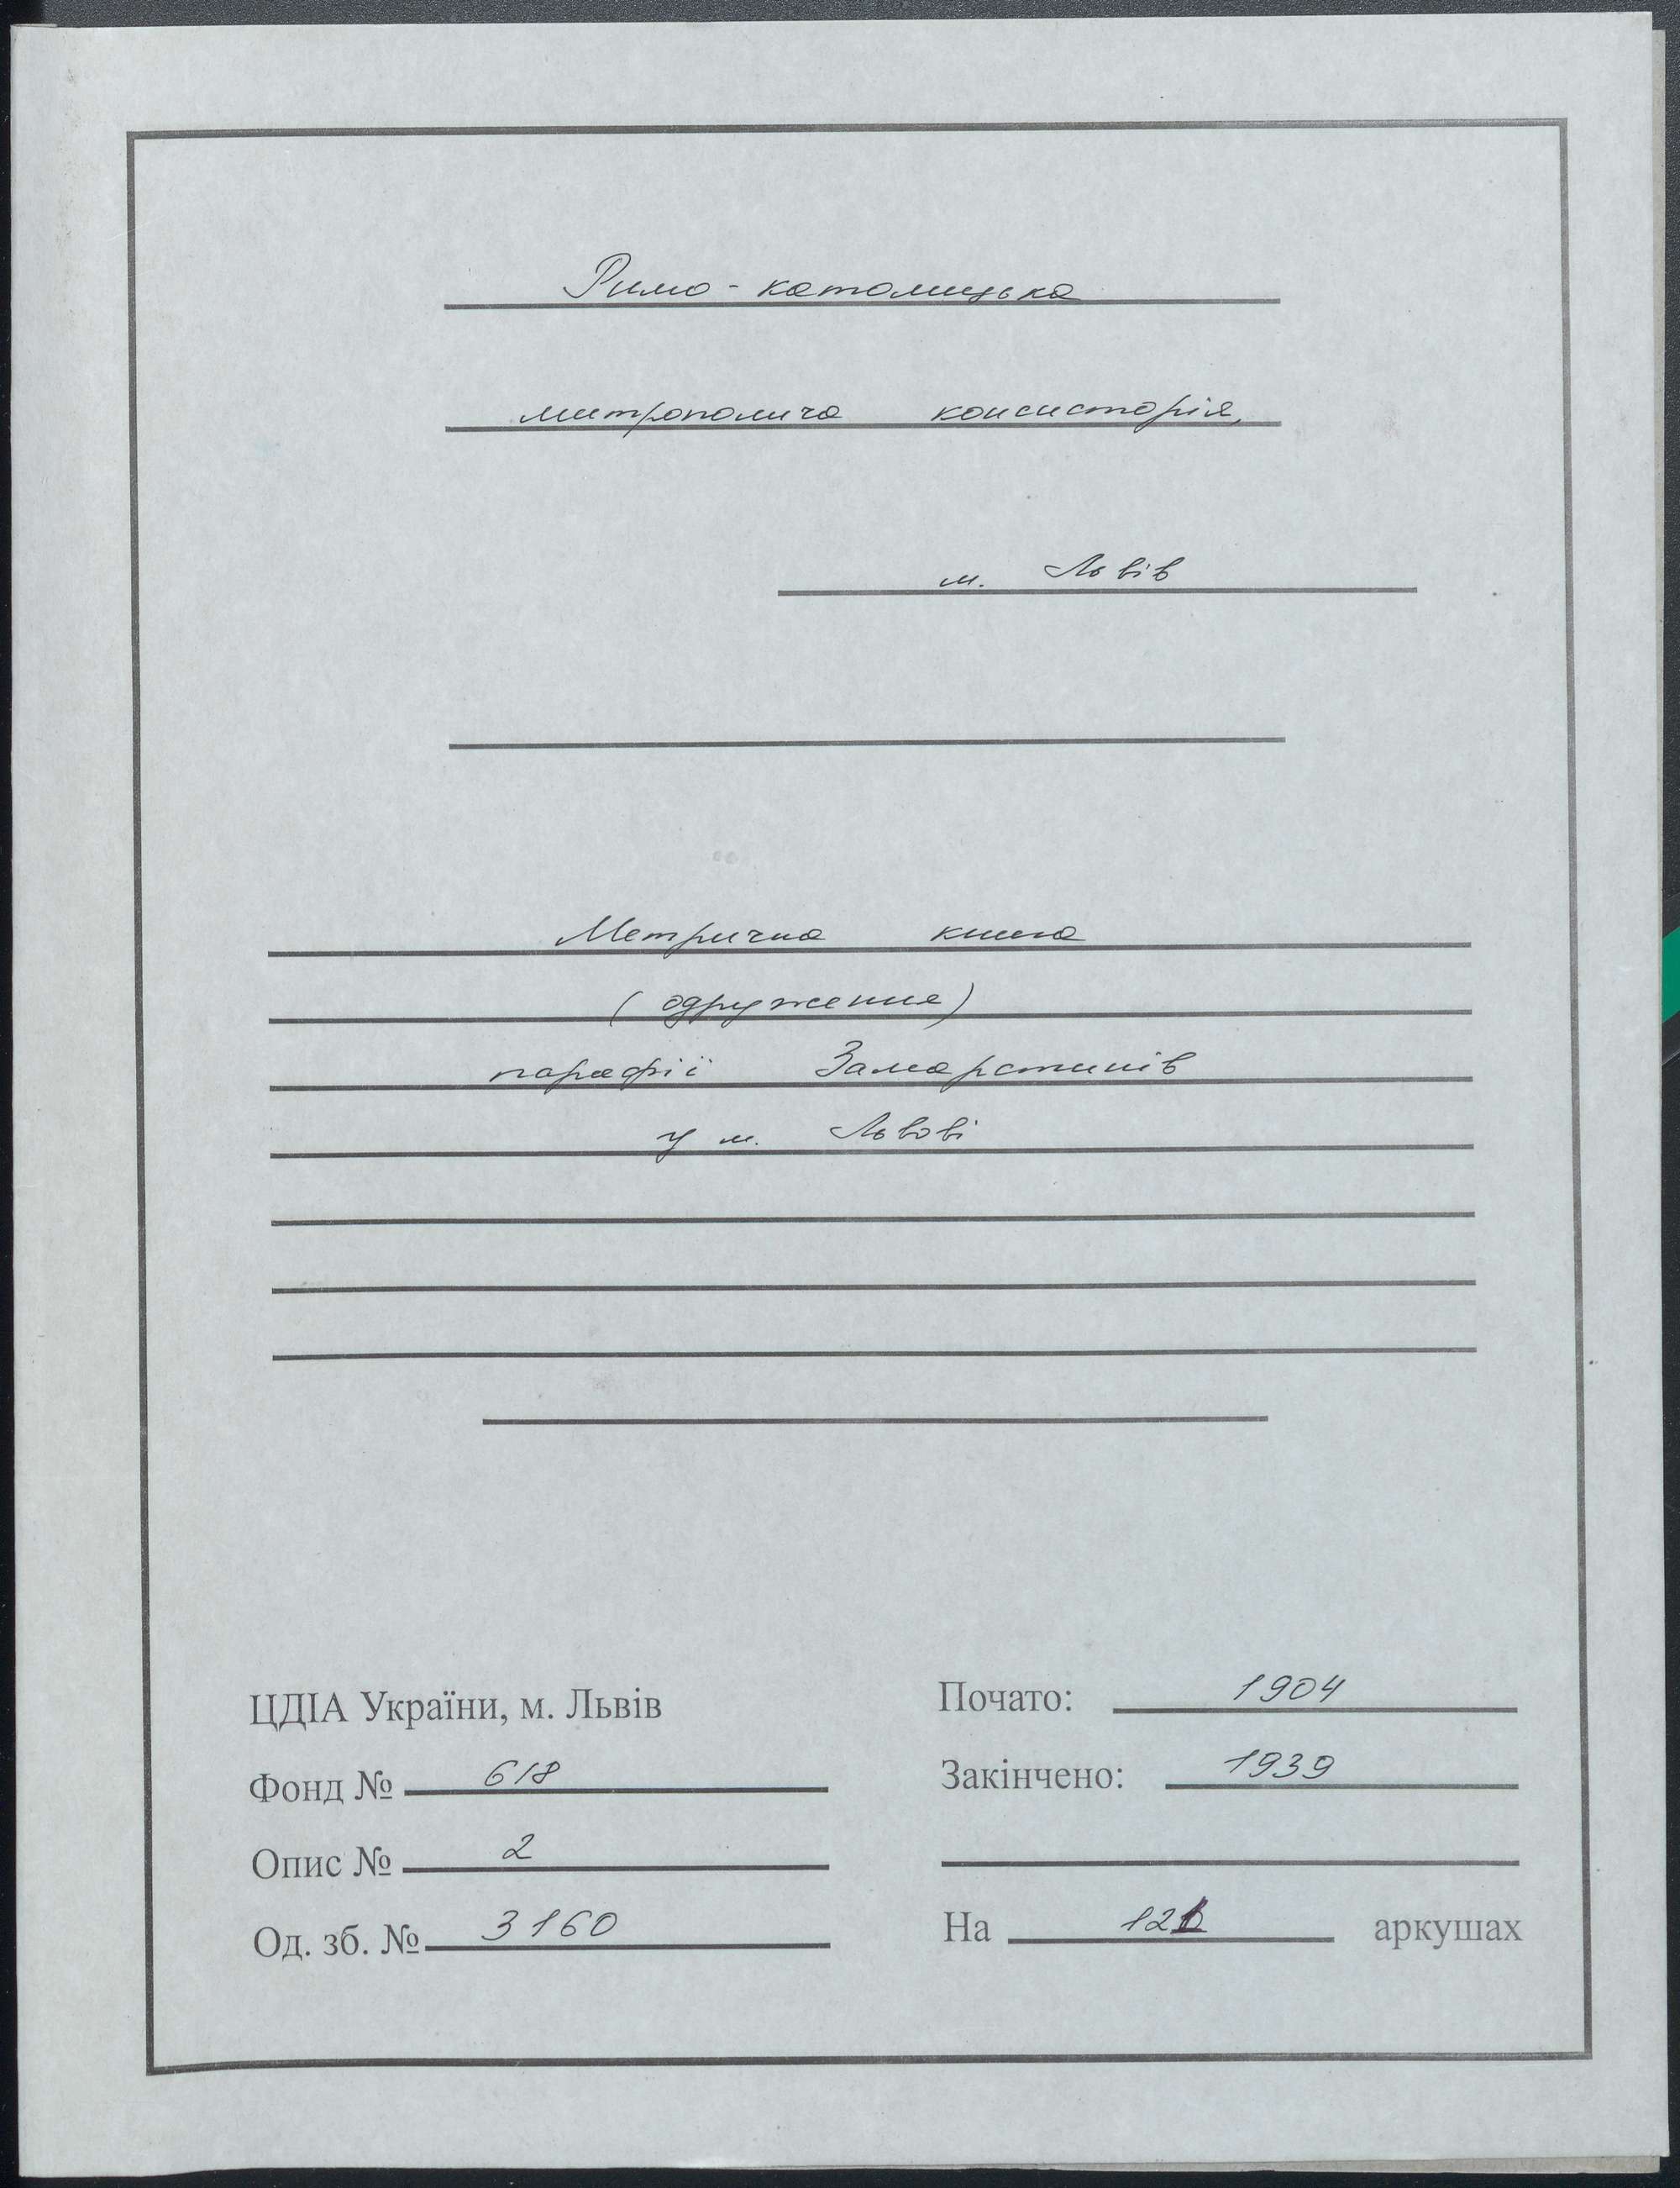 Римо-католицька
митрополича консисторія,
м. Львів
Метрична книга
(одруження)
парафії Замарстинів
у м. Львові
ЦДІА України, м. Львів
Фонд № 618
Опис № 2
Од. зб. № 3160
Почато: 1904
Закінчено: 1939
На 121 аркушах